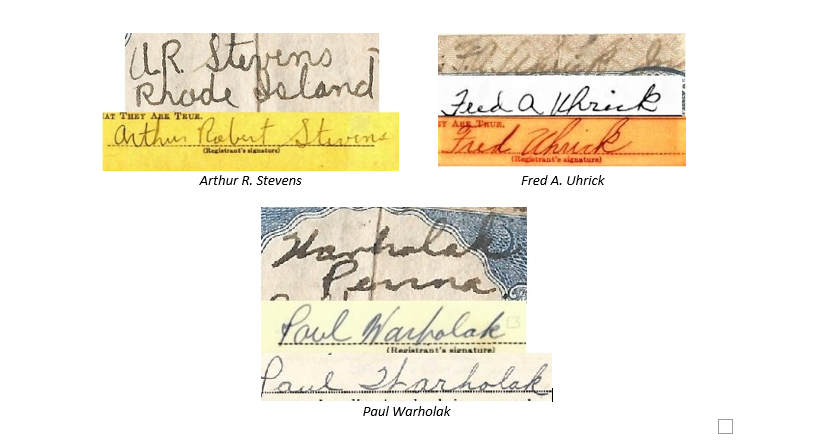 U.R. Stevens
Rhode Island
AT THEY ARE TRUE.
Arthur Robert Stevens
(Registrant's signature)
Arthur R. Stevens
Fred A Uhrick
EY ARE TRUE.
Fred Uhrick
(Registrant's signature)
Fred A. Uhrick
Warholak
Penna.
Paul Warholak
(Registrant's signature)
Paul Warholak
Paul Warholak